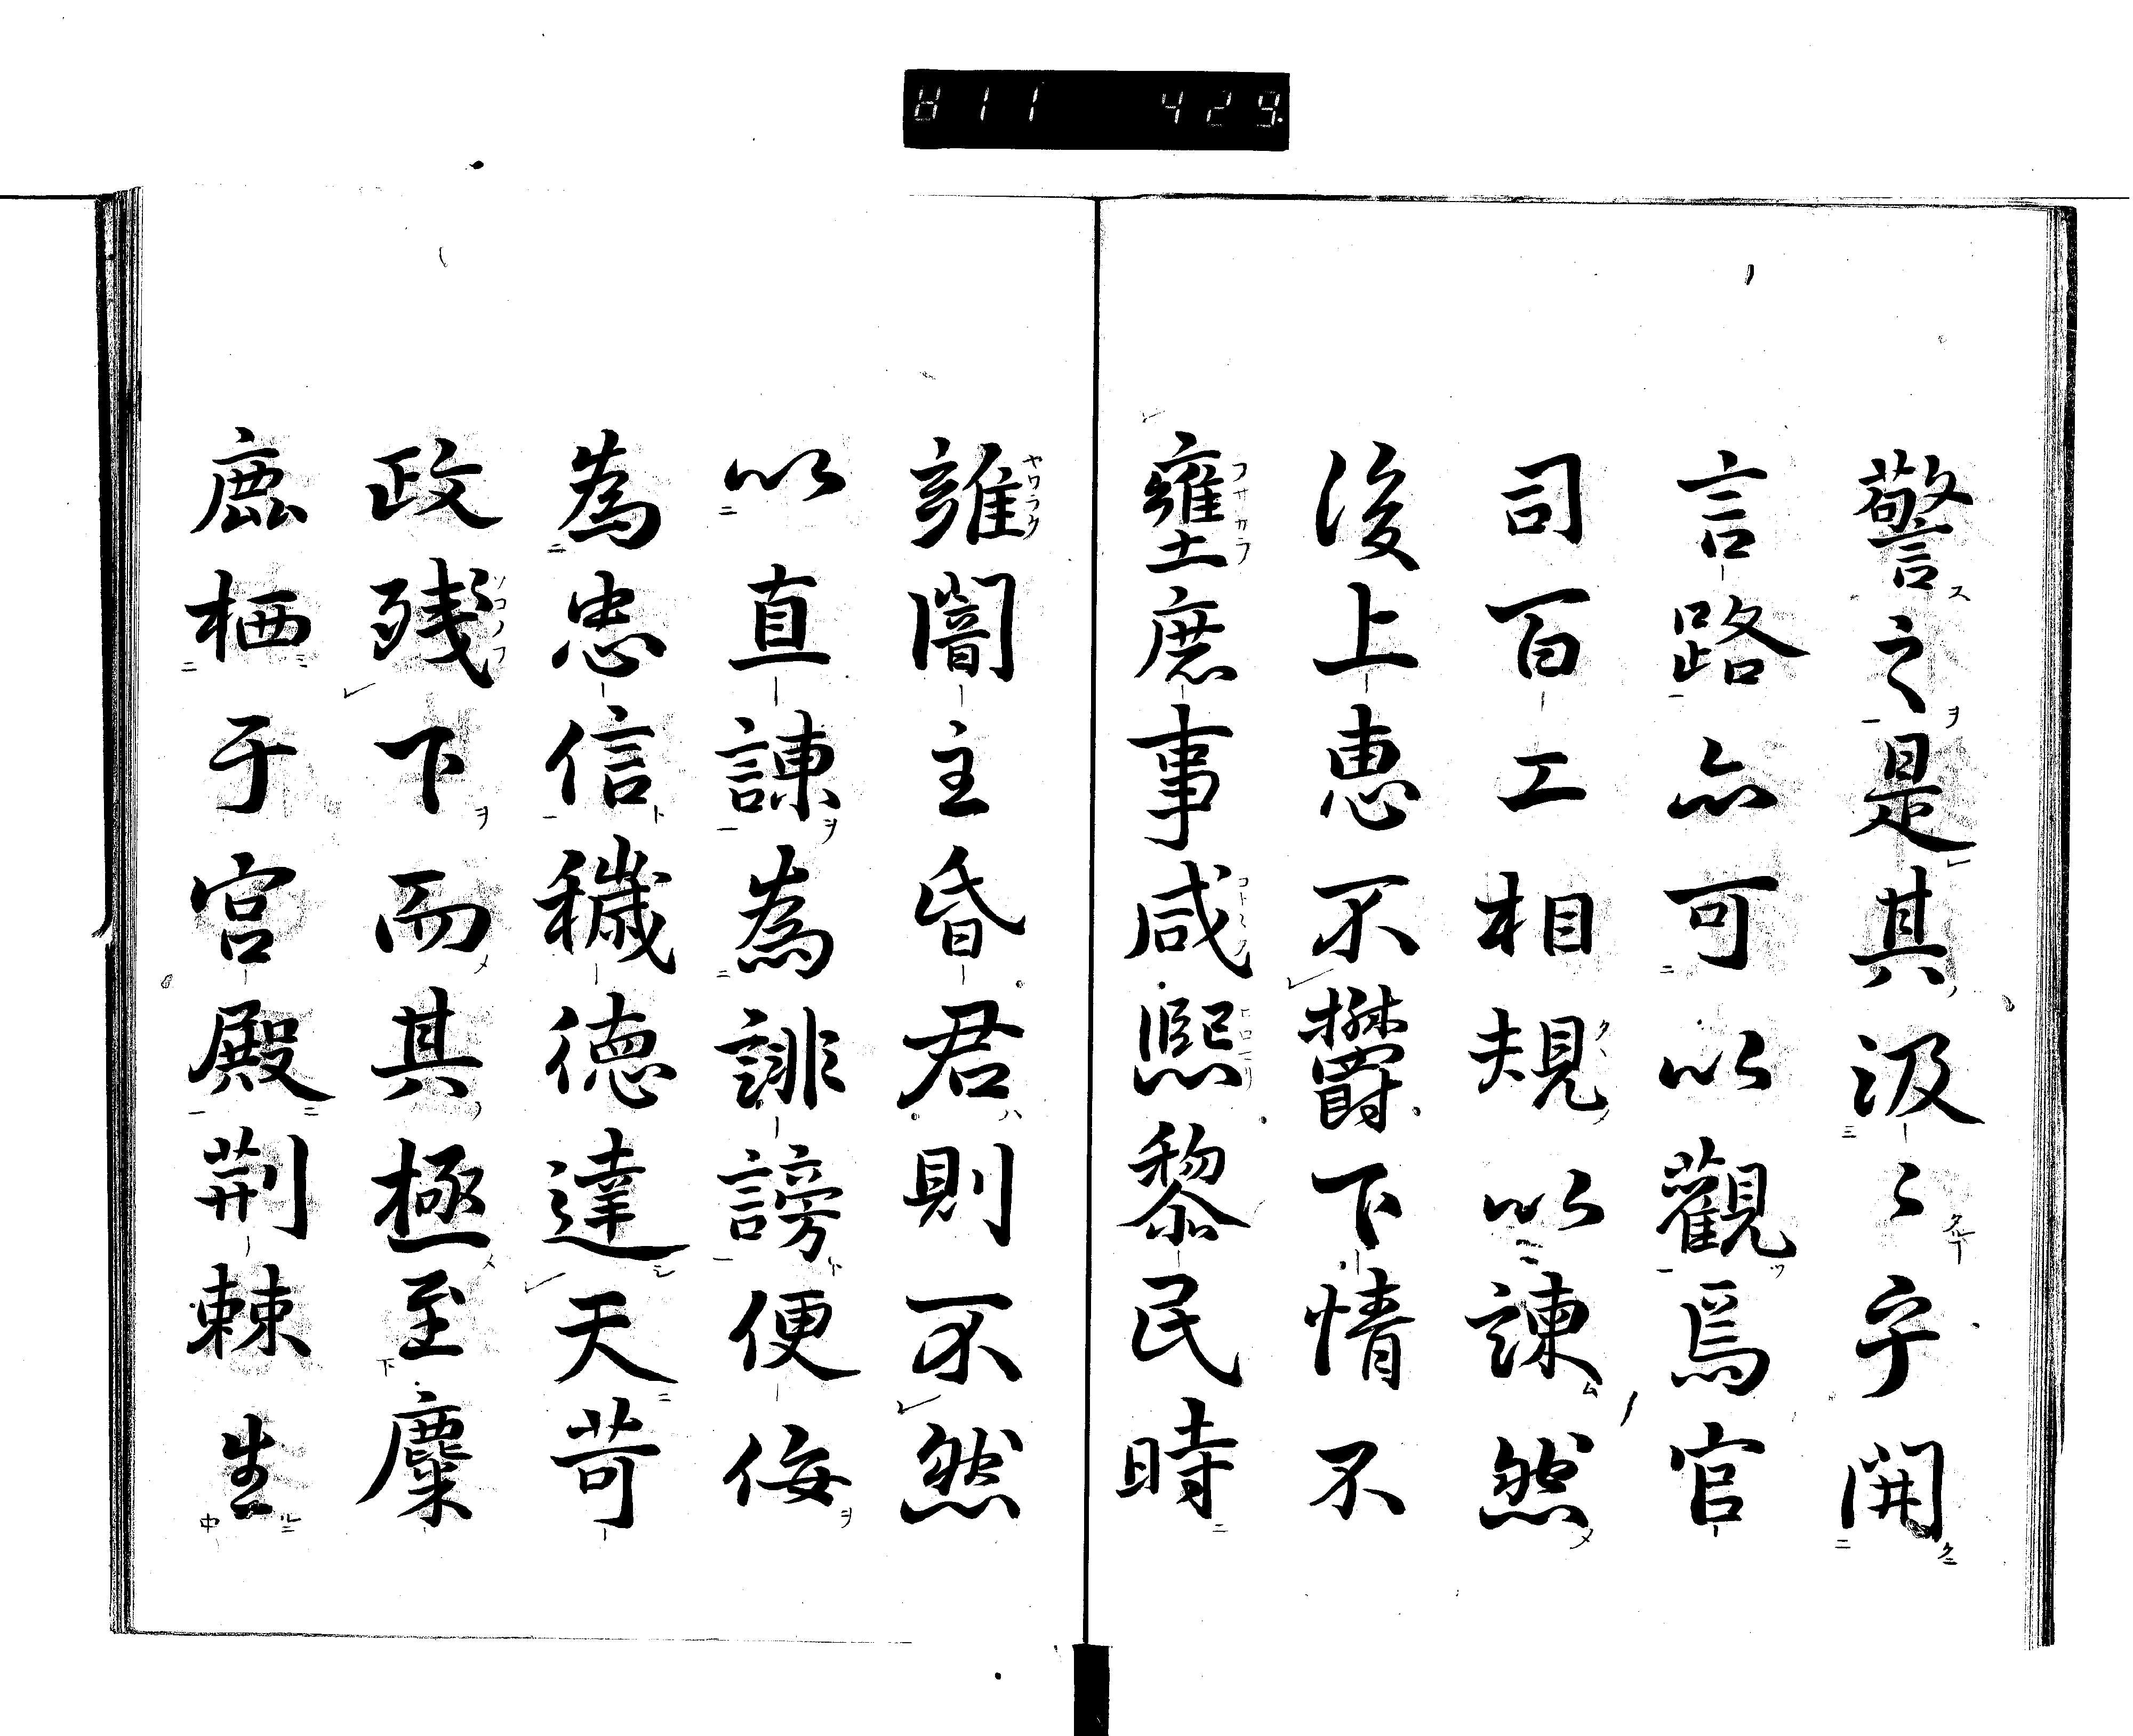 警之是其汲〻乎開
言路亦可以觀焉官
司百工相規以諫然
後上恵不欝下情不
壅庶事咸熙黎民時
雍闇主昏君則不然
以直諫為誹謗便佞
為忠信穢徳達天苛
政残下而其極至麋
鹿栖于宮殿荆棘生